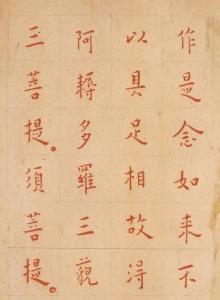 作是念如来不
以具足相故得
阿耨多羅三藐
三菩提。須菩
提。